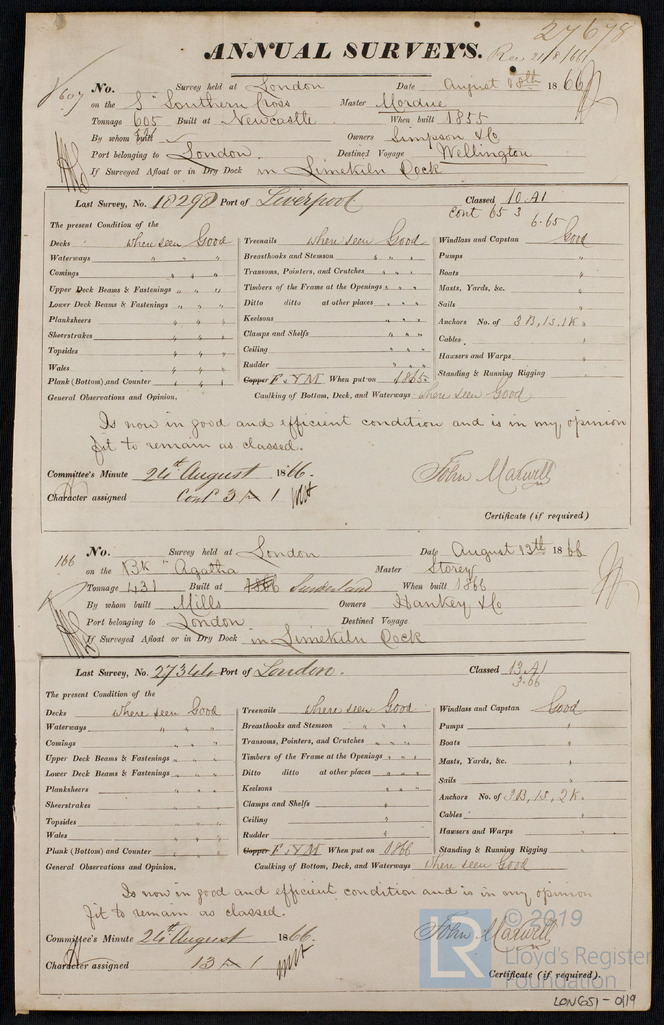 27678
ANNUAL SURVEYS. Rec 21/8/66
607 No. Survey held at London Date August 18th 1866
on the S "Southern Cross Master Mordue
Tonnage 605 Built at Newcastle When built 1855
By whom built Owners Simpson & Co
Port belonging to London. Destined Voyage Wellington
If Surveyed Afloat or in Dry Dock in Limekiln Dock
Last Survey, No. 10290 Port of Liverpool Classed 10 A1
Cont 65 3
6.65
The present Condition of the
Decks where seen Good Treenails where seen Good Windlass and Capstan Good
Waterways " " " Breasthooks and Stemson " " " Pumps "
Comings " " " Transoms, Pointers, and Crutches " " " Boats "
Upper Deck Beams & Fastenings " " " Timbers of the Frame at the Openings " " " Masts, Yards, &c. "
Lower Deck Beams & Fastenings " " " Ditto ditto at other places " " " Sails "
Planksheers " " " Keelsons " " " Anchors No. of 3B, 1S, 1K "
Sheerstrakes " " " Clamps and Shelfs " " " Cables "
Topsides " " " Ceiling " " " Hawsers and Warps "
Wales " " " Rudder " " " Standing & Running Rigging "
Plank (Bottom) and Counter " " " Copper F & YM When put on 1865.
General Observations and Opinion. Caulking of Bottom, Deck, and Waterways where seen Good
Is now in good and efficient condition and is in my opinion
fit to remain as classed.
Committee's Minute 24th August 1866. John Maxwell
Character assigned Cont 3 A 1
Certificate (if required)
166 No. Survey held at London Date August 13th 1866
on the Bk "Agatha Master Storey
Tonnage 431 Built at 1866 Sunderland When built 1866
By whom built Mills Owners Hankey & Co
Port belonging to London Destined Voyage
If Surveyed Afloat or in Dry Dock in Limekiln Dock
Last Survey, No. 27344 Port of London. Classed 13 A1
3.66
The present Condition of the
Decks where seen Good Treenails where seen Good Windlass and Capstan Good
Waterways " " " Breasthooks and Stemson " " " Pumps "
Comings " " " Transoms, Pointers, and Crutches " " " Boats "
Upper Deck Beams & Fastenings " " " Timbers of the Frame at the Openings " " " Masts, Yards, &c. "
Lower Deck Beams & Fastenings " " " Ditto ditto at other places " " " Sails "
Planksheers " " " Keelsons " " " Anchors No. of 3B, 1S, 2K.
Sheerstrakes " " " Clamps and Shelfs " Cables "
Topsides " " " Ceiling " Hawsers and Warps "
Wales " " " Rudder " Standing & Running Rigging "
Plank (Bottom) and Counter Copper F & YM When put on 1866
General Observations and Opinion. Caulking of Bottom, Deck, and Waterways where seen Good
Is now in good and efficient condition and is in my opinion
fit to remain as classed.
Committee's Minute 24th August 1866. John Maxwell
Character assigned 13 A 1
Certificate (if required).
LR © 2019
Lloyd's Register
Foundation
LON651-0119